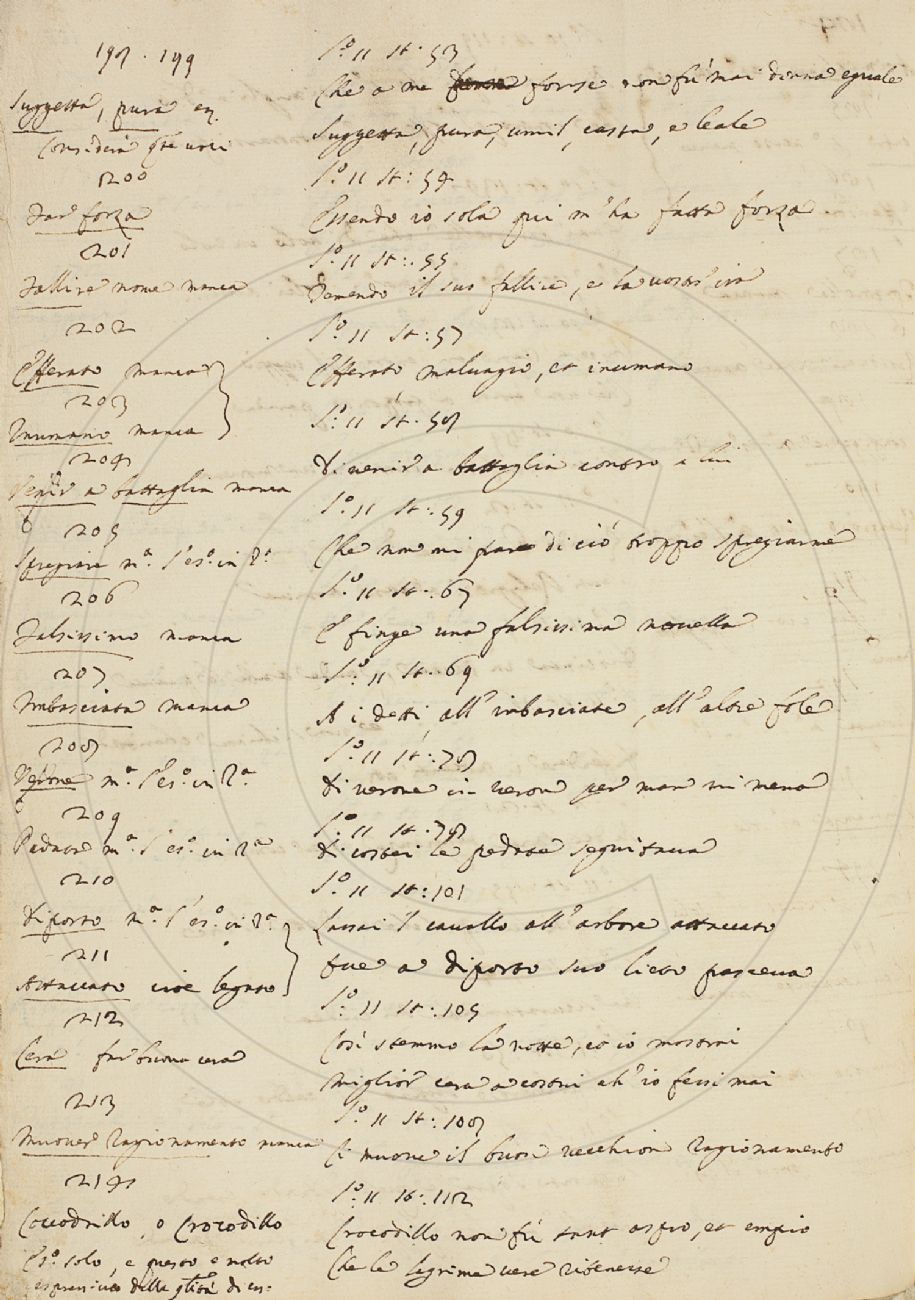 198 . 199
C.º 11 St. 53
Suggetta, pura en.
Che a me forse non fù mai donna eguale
Considera q.te voci
Suggetta, pura, umil, casta, e leale
200
C.º 11 St: 54
Far forza
Essendo io sola qui m'ha fatta forza.
201
C.º 11 St: 55
Fallire nome manca
Temendo il suo fallire, e la vostr'ira
202
C.º 11 St: 57
Efferato manca
Efferato malvagio, et inumano
203
C.º 11 St. 58
Inumano manca
204
Di venir a battaglia contro a lui
Venir a battaglia manca
C.º 11 St: 59
205
Che non mi pare di ciò troppo spregiarne
Spregiare m.ª l'es.º in P.ª
C.º 11 St: 67
206
E finge una falsissima novella
Falsissimo manca
C.º 11 St: 69
207
A i detti all'imbasciate, all'altre fole
Imbasciata manca
C.º 11 St: 78
208
Di verone in veron per man mi mena
Verone m.ª l'es.º in P.ª
C.º 11 St: 79
209
Di costei le pedate seguitava
Pedata m.ª l'es.º in P.ª
C.º 11 St: 101
210
Lassai 'l cavallo all'arbore attaccato
Diporto m.ª l'es.º in P.ª
211
Che a diporto suo lieto pasceva
Attaccato cioè legato
C.º 11 St: 105
212
Così stemmo la notte, ed io mostrai
Cera far buona cera
Miglior cera a costui ch'io fessi mai
213
C.º 11 St: 108
Muover ragionamento manca
E muove il buon vecchion ragionamento
214
C.º 11 St: 112
Coccodrillo, o Crocodillo
Crocodillo non fù tant aspro, et empio
Es.º solo, e questo è molto
Che le legrime vere ritenesse
espressivo della q.lità di es: